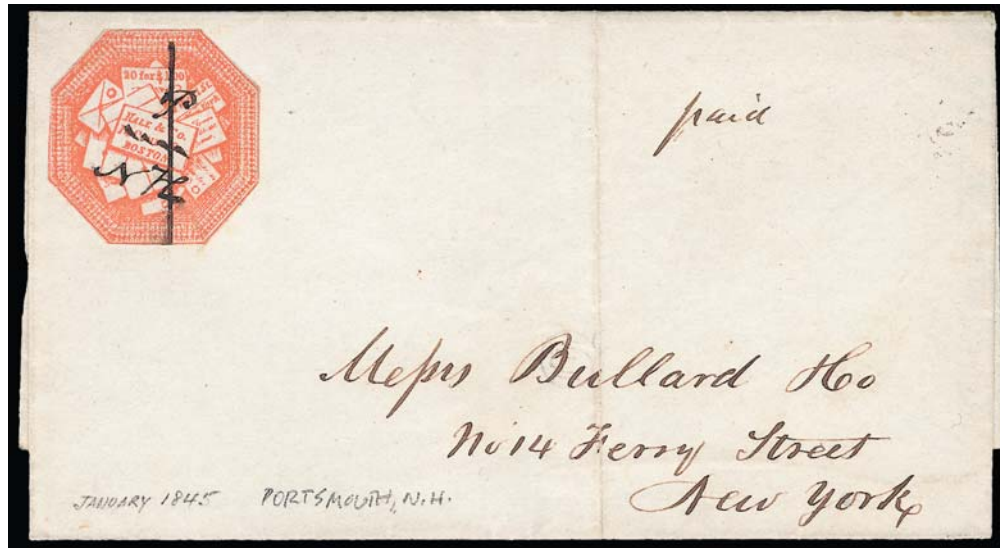 20 for $1.00
HALE & Co.
BOSTON
P
NH
paid
Messrs Bullard & Co
No 14 Ferry Street
New York
JANUARY 1845 PORTSMOUTH, N.H.